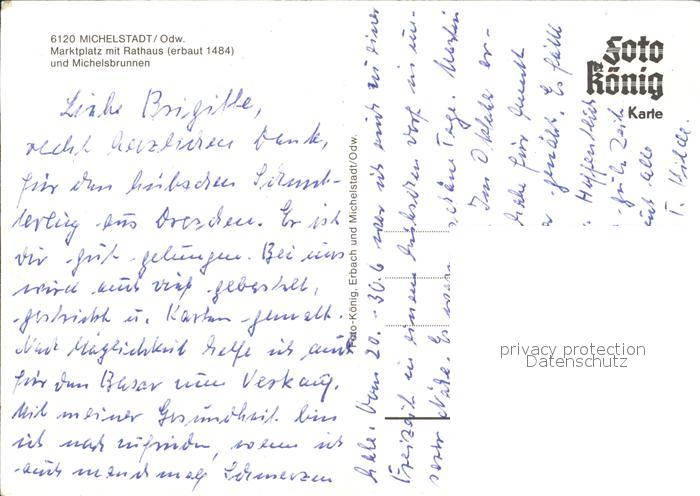 6120 MICHELSTADT/Odw.
Marktplatz mit Rathaus (erbaut 1484)
und Michelsbrunnen
Foto
König
Karte
Foto-König, Erbach und Michelstadt/Odw.
Liebe Brigitte,
recht herzlichen Dank,
für den hübschen Schmet-
terling aus Dresden. Er ist
dir gut gelungen. Bei uns
wird auch viel gebastelt,
gestrickt u. Karten gemalt.
Nach Möglichkeit helfe ich auch
für den Basar zum Verkauf.
Mit meiner Gesundheit bin
ich noch zufrieden, wenn ich
auch manchmal Schmerzen
habe. Vom 20. - 30.6 war ich auch zu einer
Freizeit in einem hübschen Dorf in un-
serer Nähe. Es waren schöne Tage.
Im Oktober
für
genäht. Es fällt
gute Zeit
alle
privacy protection
Datenschutz